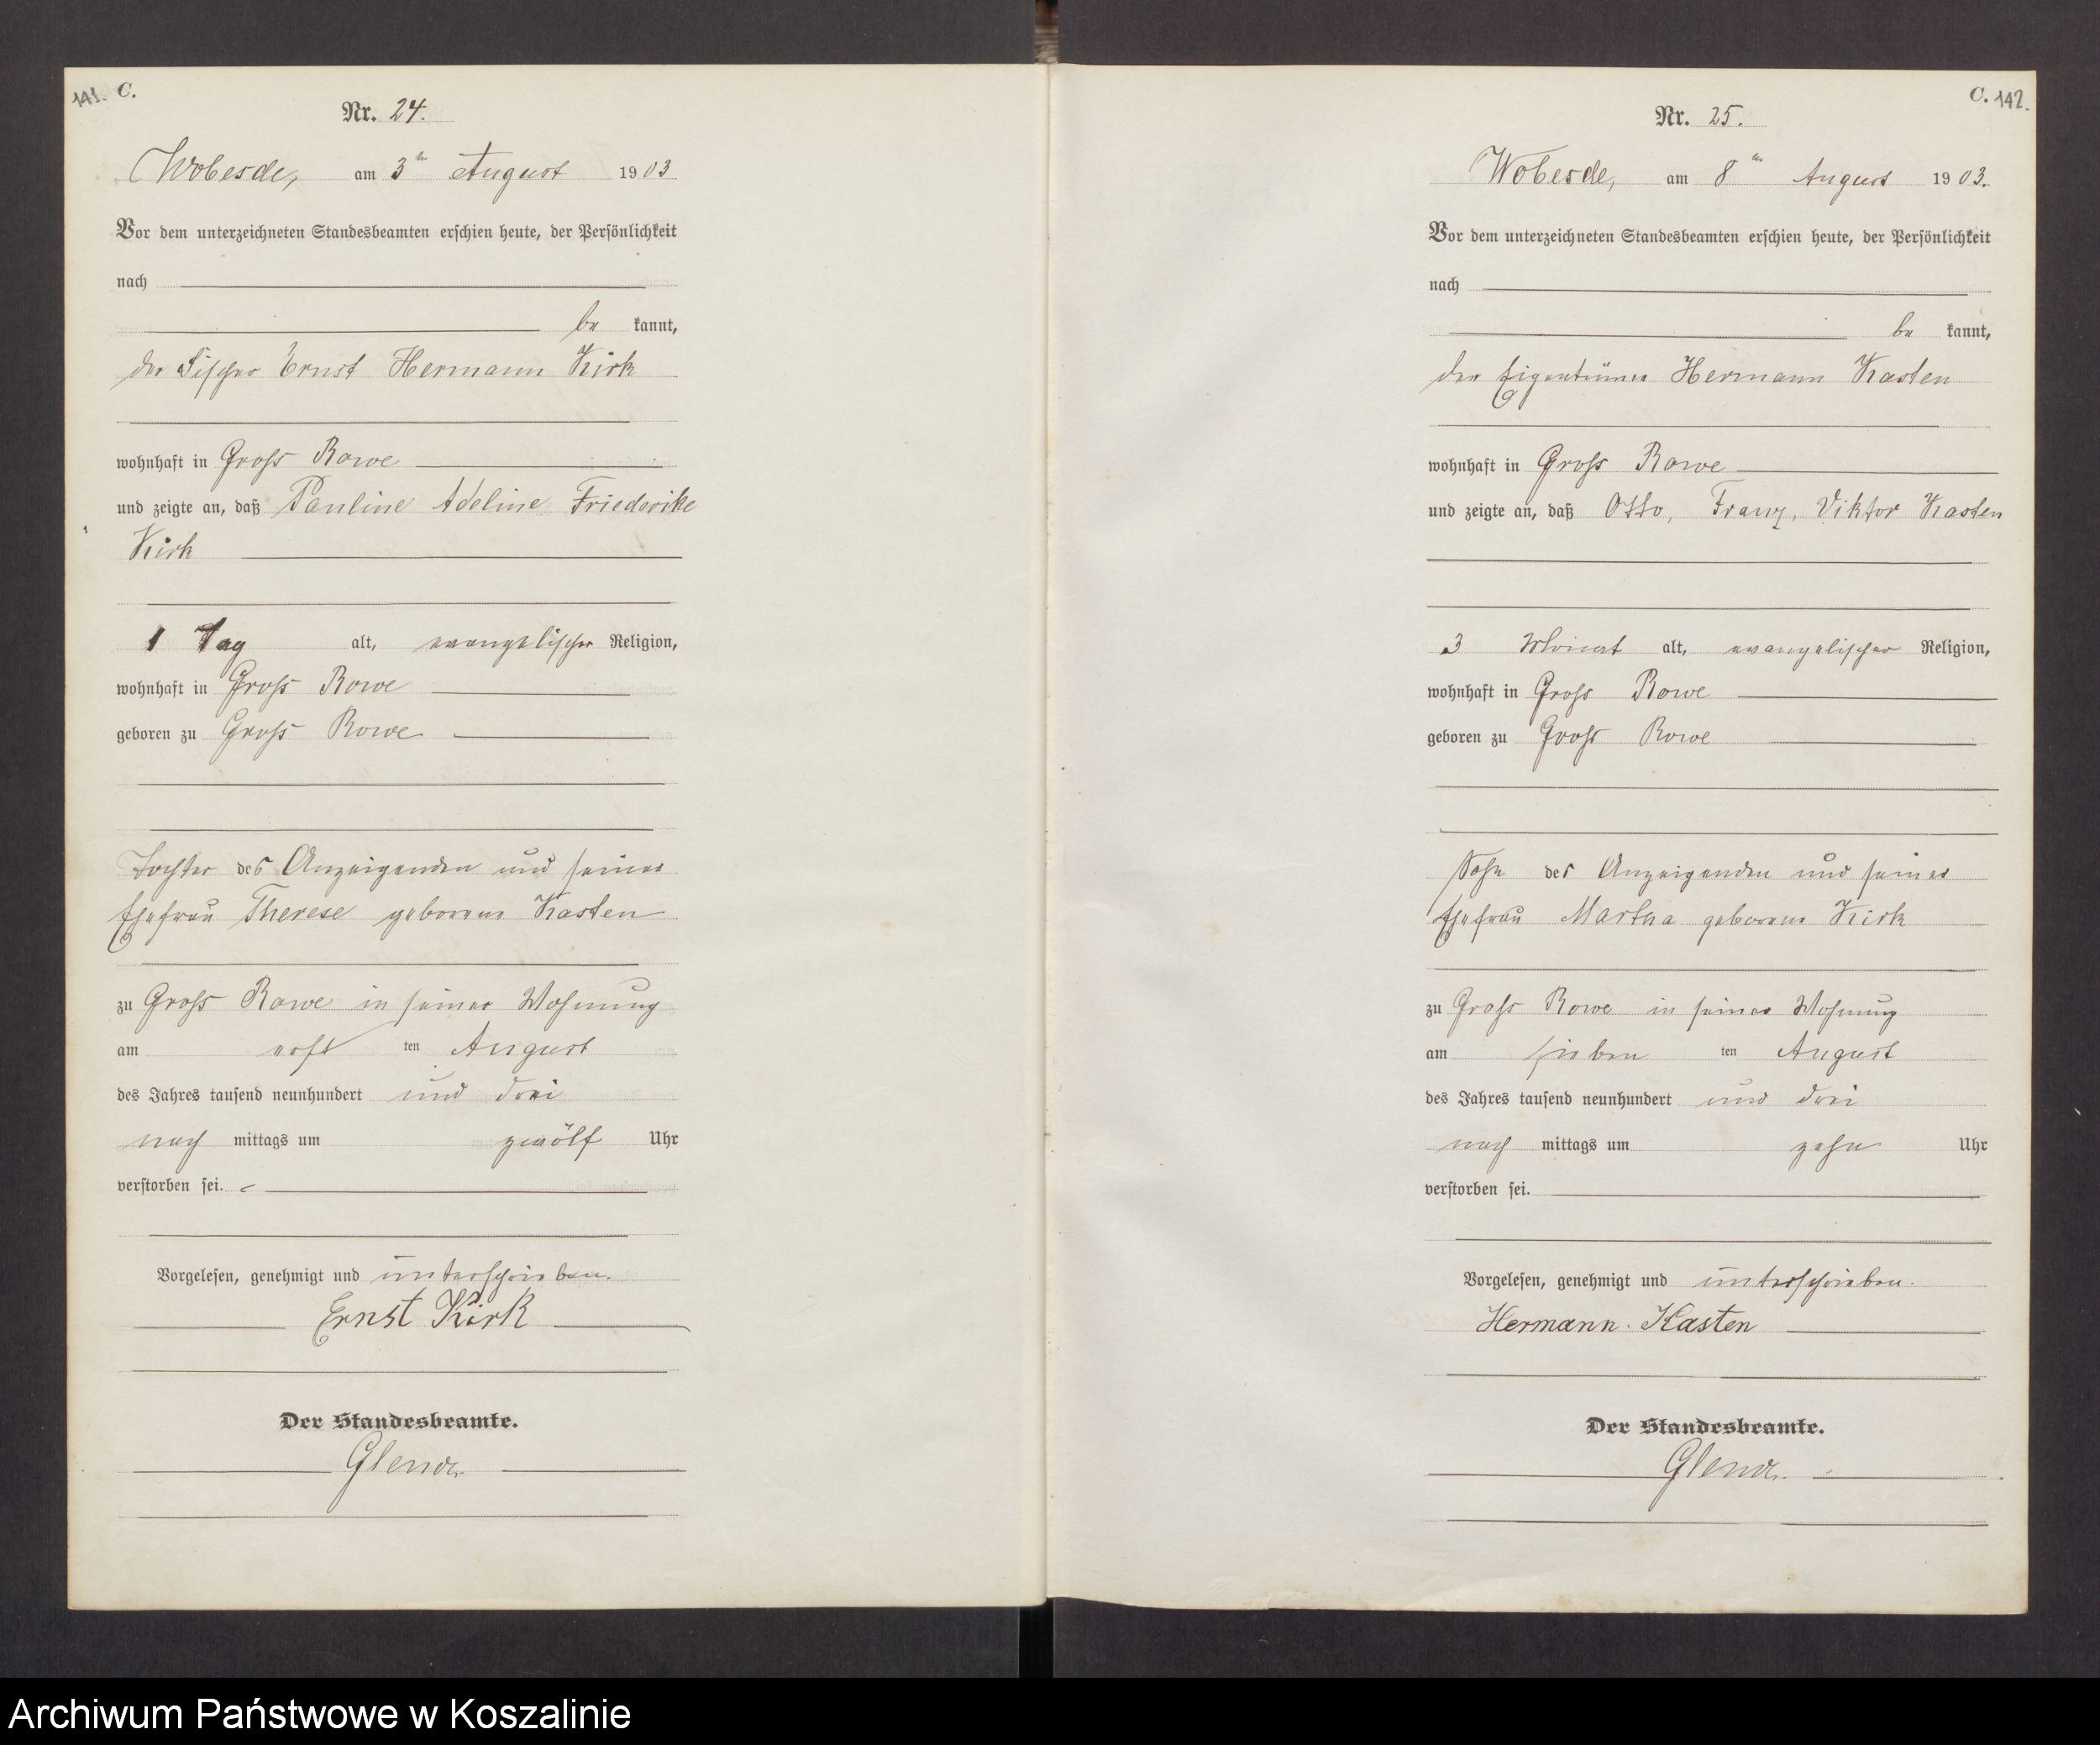 141. C.
Nr. 24.
Wobesde, am 3ten August 1903
Vor dem unterzeichneten Standesbeamten erschien heute, der Persönlichkeit
nach
be kannt,
der Fischer Ernst Hermann Kirk
wohnhaft in Gross Rowe
und zeigte an, daß Pauline Adeline Friederike
Kirk
1 Tag alt, evangelischer Religion,
wohnhaft in Gross Rowe
geboren zu Gross Rowe
Tochter des Anzeigenden und seiner
Ehefrau Therese geborene Kasten
zu Gross Rowe in seiner Wohnung
am erst ten August
des Jahres tausend neunhundert und drei
nach mittags um zwölf Uhr
verstorben sei.
Vorgelesen, genehmigt und unterschrieben.
Ernst Kirk
Der Standesbeamte.
C. 142.
Nr. 25.
Wobesde, am 8ten August 1903.
Vor dem unterzeichneten Standesbeamten erschien heute, der Persönlichkeit
nach
be kannt,
der Eigentümer Hermann Kasten
wohnhaft in Gross Rowe
und zeigte an, daß Otto, Franz, Viktor Kasten
3 Monat alt, evangelischer Religion,
wohnhaft in Gross Rowe
geboren zu Gross Rowe
Sohn des Anzeigenden und seiner
Ehefrau Martha geborene Kirk
zu Gross Rowe in seiner Wohnung
am sieben ten August
des Jahres tausend neunhundert und drei
nach mittags um zehn Uhr
verstorben sei.
Vorgelesen, genehmigt und unterschrieben.
Hermann Kasten
Der Standesbeamte.
Archiwum Państwowe w Koszalinie